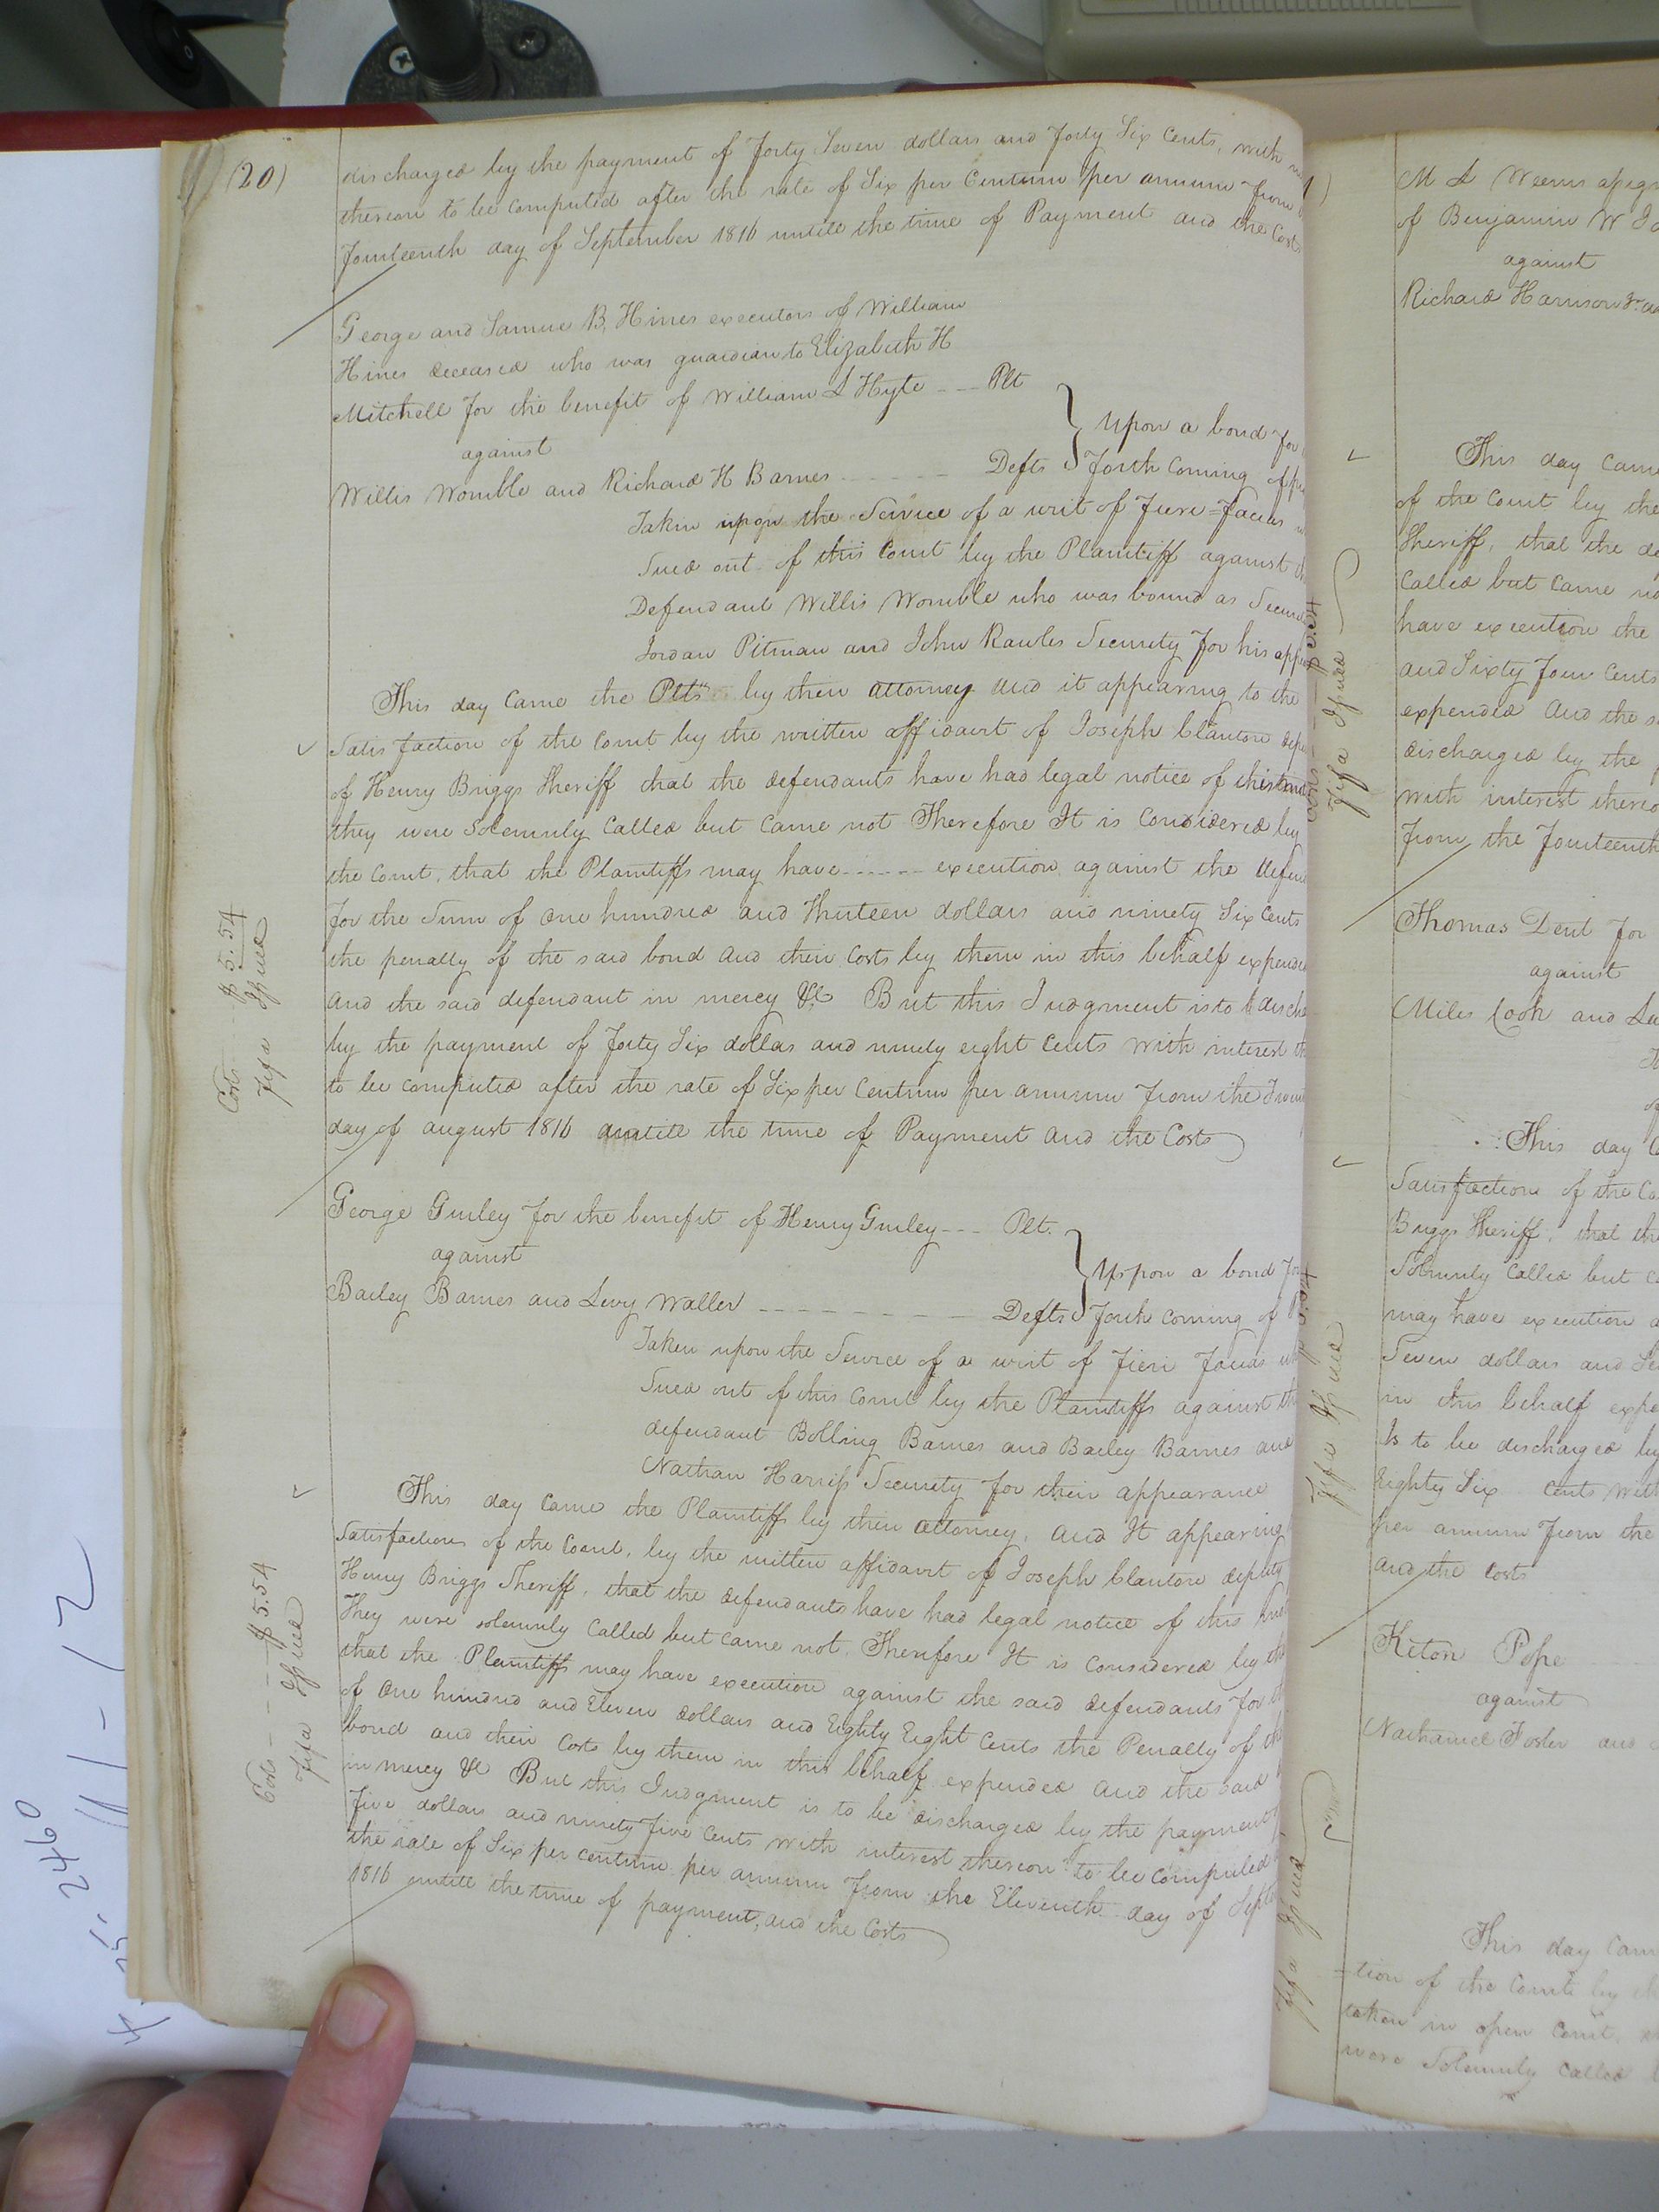 (20)
discharged by the payment of Forty Seven dollars and Forty Six Cents, with
thereon to be computed after the rate of Six per Centum per annum from
Fourteenth day of September 1816 untill the time of Payment and the Costs
George and Samuel B. Hines executors of William
Hines deceased who was guardian to Elizabeth H
Mitchell for the benefit of William L Hyte -- Plt
against
Willis Womble and Richard H Barnes ------ Defts
Upon a bond for
Forth Coming of
Taken upon the Service of a writ of Fieri=Facias
Sued out of this Court by the Plaintiff against
Defendant Willis Womble who was bound as
Jordan Pitman and John Rawles Security for his
This day Came the Plts by their attorney and it appearing to the
Satisfaction of the Court by the written affidavit of Joseph Clanton
of Henry Briggs Sheriff that the defendants have had legal notice of this
they were Solemnly Called but Came not Therefore It is Considered by
the Court, that the Plaintiffs may have ------ execution against the
for the Sum of one hundred and thirteen dollars and ninety Six Cents
the penalty of the said bond and their Costs by them in this behalf expended
and the said defendant in mercy &c But this Judgment is to be
by the payment of Forty Six dollas and ninety eight Cents with interest
to be computed after the rate of Six per Centum per annum from the
day of august 1816 untill the time of Payment and the Costs
Costs --- $5.54
Fifa Issued
George Gurley for the benefit of Henry Gurley --- Plt.
against
Bailey Barnes and Levy Waller -------- Defts
Upon a bond
Forth Coming of
Taken upon the Service of a writ of Fieri Facias
Sued out of this Court by the Plaintiffs against
defendant Bolling Barnes and Bailey Barnes and
Nathan Harriss Security for their appearance
This day Came the Plaintiff by their attorney, and It appearing
Satisfaction of the Court, by the written affidavit of Joseph Clanton deputy
Henry Briggs Sheriff, that the defendants have had legal notice of this
They were solemnly Called but Came not, Therefore It is Considered by the
that the Plaintiffs may have execution against the said defendants for
of one hundred and Eleven dollars and Eighty Eight Cents the Penalty of
bond and their Costs by them in this behalf expended and the said
in mercy &c But this Judgment is to be discharged by the payment
Five dollars and ninety Five Cents with interest thereon to be computed
the rate of Six per centum per annum from the Eleventh day of
1816 untill the time of payment, and the Costs
Costs ---- $5.54
Fifa Issued
M L Weems
of Benjamin W
against
Richard Harrison
This day Came
of the Court by the
Sheriff, that the
Called but Came
have execution the
and Sixty Four Cents
expended and the
discharged by the
with interest
From the Fourteenth
Fifa Issued
Thomas Dent for
against
Miles Cook and
This day
Satisfaction of the
Briggs Sheriff, that
Solemnly Called but
may have execution
Seven dollars and
in this behalf
Is to be discharged by
Eighty Six Cents with
per annum from the
and the Costs
Fifa Issued
Keton Pope
against
Nathaniel Foster and
This day Came
=tion of the Court by
taken in open Court,
were Solemnly Called
Fifa Issued
2460
11-12